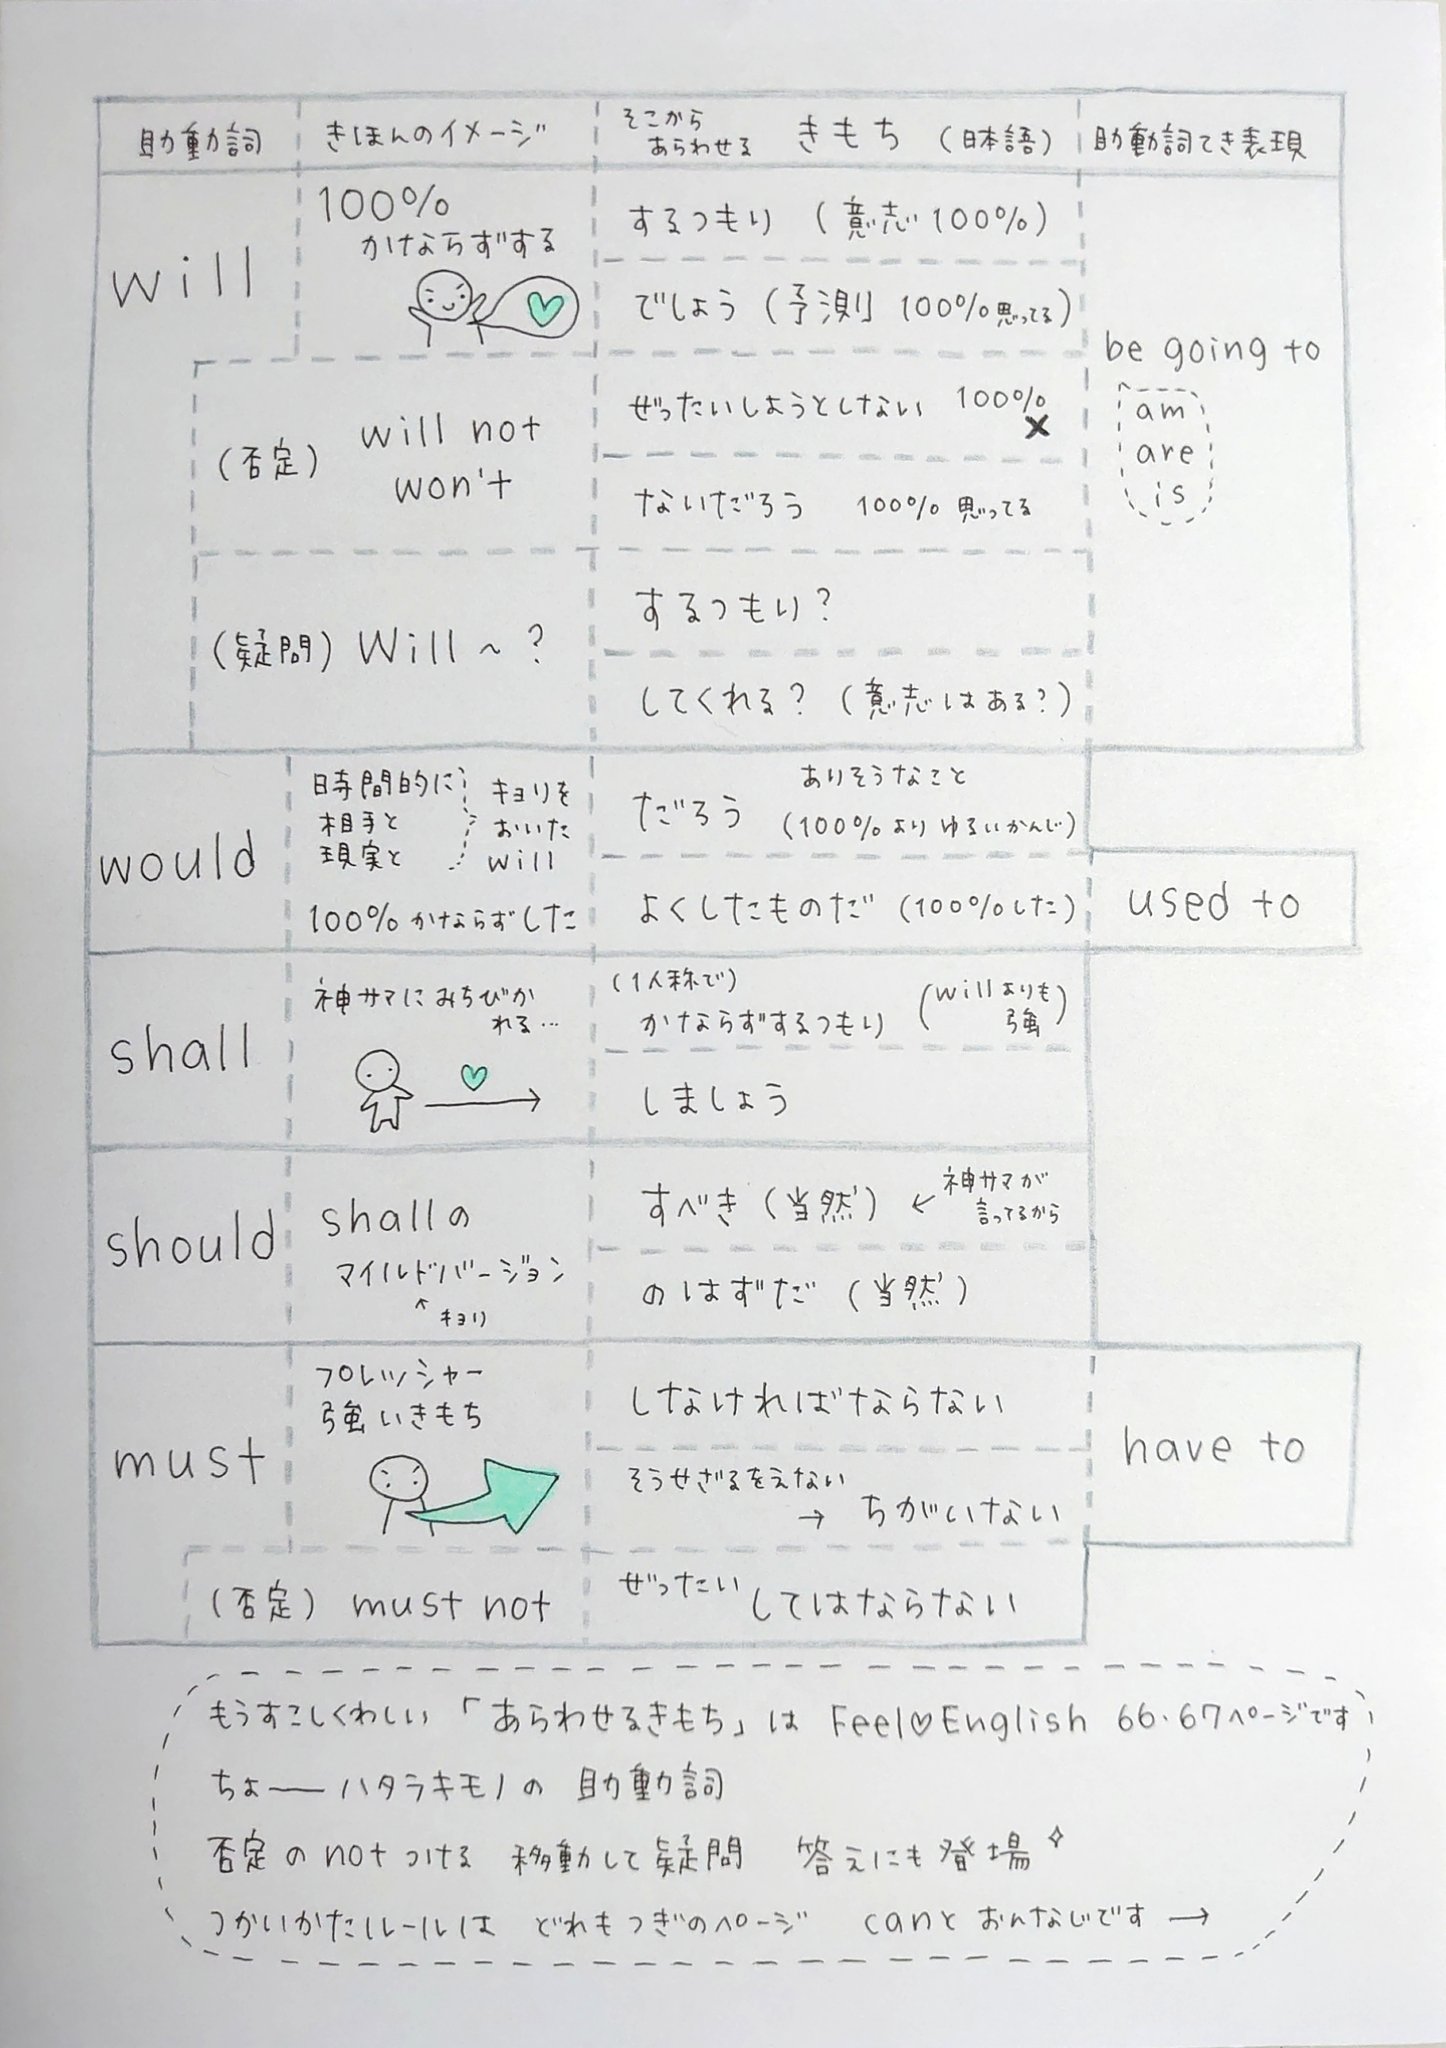 助動詞 きほんのイメージ そこからあらわせる きもち (日本語) 助動詞てき表現
will
100%
かならずする
するつもり (意志 100%)
でしょう (予測 100%思ってる)
be going to
am
are
is
(否定) will not
won't
ぜったいしようとしない 100%
ないだろう 100% 思ってる
(疑問) Will ~ ?
するつもり?
してくれる? (意志はある?)
would
時間的に
相手と
現実と
キョリを
おいた
will
100% かならずした
だろう ありそうなこと
(100%より ゆるいかんじ)
よくしたものだ (100%した)
used to
shall
神サマに みちびか
れる…
(1人称で)
かならずするつもり (willよりも
強)
しましょう
should
shallの
マイルドバージョン
↑キョリ
すべき (当然) ← 神サマが
言ってるから
のはずだ (当然)
must
プレッシャー
強いきもち
しなければならない
そうせざるをえない
→ ちがいない
have to
(否定) must not
ぜったい してはならない
もうすこしくわしい「あらわせるきもち」は Feel♡English 66・67ページです
ちょ——ハタラキモノの 助動詞
否定のnotつける 移動して疑問 答えにも登場✧
つかいかたルールは どれもつぎのページ canと おんなじです →